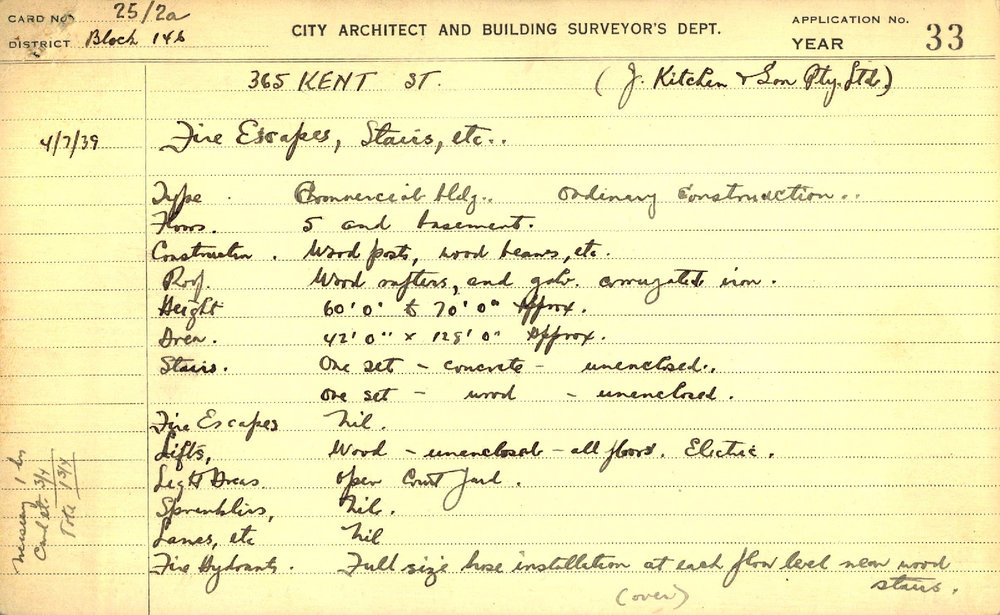 CARD NO. 25/2a
CITY ARCHITECT AND BUILDING SURVEYOR'S DEPT.
APPLICATION No.
DISTRICT Block 146
YEAR 33
365 KENT ST. (J. Kitchen & Son Pty. Ltd.)
4/7/39 Fire Escapes, Stairs, etc..
Type . Commercial bldg.. Ordinary Construction..
Floors. 5 and basement.
Construction . Wood posts, wood beams, etc.
Roof. Wood rafters, and galv. corrugated iron.
Height 60'0" to 70'0" Approx.
Area. 42'0" x 128'0" Approx.
Stairs. One set - concrete - unenclosed..
One set - wood - unenclosed.
Fire Escapes Nil.
Lifts, Wood - unenclosed - all floors. Electric.
Light Areas. Open Court Yard.
Sprinklers, Nil.
Lanes, etc Nil
Fire Hydrants. Full size hose installation at each floor level near wood
stairs.
(over)
1 hr
Card et. 3/4
Tote 1 3/4